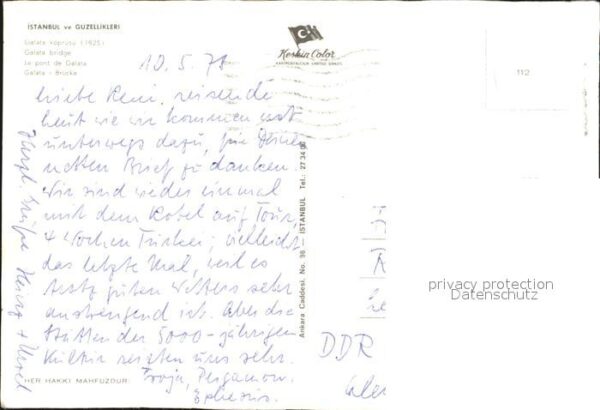 İSTANBUL ve GÜZELLİKLERİ
Galata köprüsü (1925)
Galata bridge
Le pont de Galata
Galata - Brücke
Keskin Color
KARTPOSTALCILIK LIMITED ŞİRKETİ
112
10.5.78
Liebe Reni, reisende
Leut wie wir kommen erst
unterwegs dazu, für Deinen
netten Brief zu danken.
Wir sind wieder einmal
mit dem Rotel auf Tour
4 Wochen Türkei, vielleicht
das letzte Mal, weil es
trotz guten Wetters sehr
anstrengend ist. Aber die
Stätten der 5000-jährigen
Kultur reizten uns sehr.
Troja, Pergamon,
Ephesus.
Herzl. Grüße Herzog + Ursel
Ankara Caddesi. No. 98 — İSTANBUL Tel.: 27 34 90
HER HAKKI MAHFUZDUR
DDR
privacy protection
Datenschutz